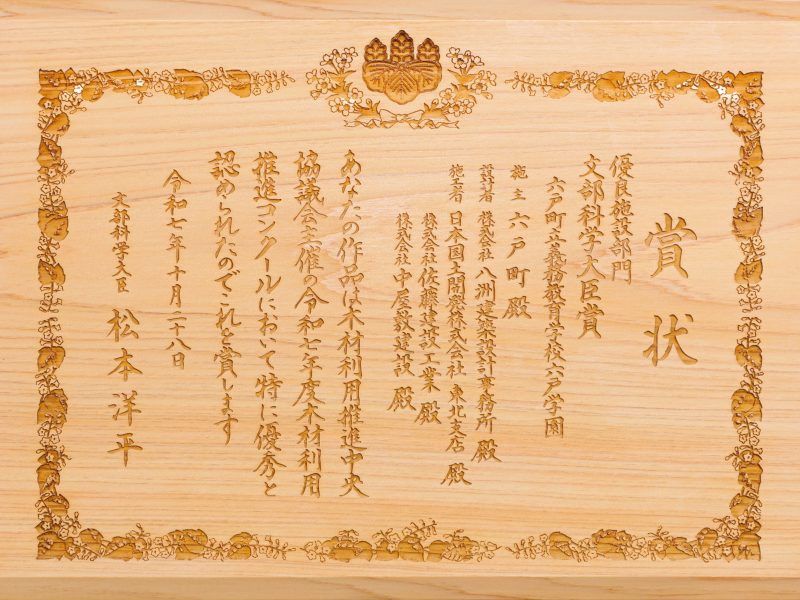 賞状
優良施設部門
文部科学大臣賞
六戸町立義務教育学校六戸学園
施主 六戸町殿
設計者 株式会社 八洲建築設計事務所 殿
施工者 日本国土開発株式会社 東北支店 殿
株式会社 佐藤建設工業 殿
株式会社 中屋敷建設 殿
あなたの作品は木材利用推進中央
協議会主催の令和七年度木材利用
推進コンクールにおいて特に優秀と
認められたのでこれを賞します
令和七年十月二十八日
文部科学大臣 松本洋平